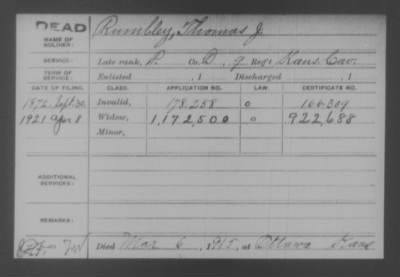 DEAD
NAME OF SOLDIER: Rumbley, Thomas J.
SERVICE: Late rank, P. Co. D, 9 Reg't Kans. Cav.
TERM OF SERVICE: Enlisted , 1 Discharged , 1
DATE OF FILING. CLASS. APPLICATION NO. LAW. CERTIFICATE NO.
1872, Sept. 30 Invalid, 178.258 o 166.309
1921 Apr 8 Widow, 1,172,500 o 922,688
Minor,
ADDITIONAL SERVICES:
REMARKS:
Died Mar 6, 1915, at Ottawa Kans